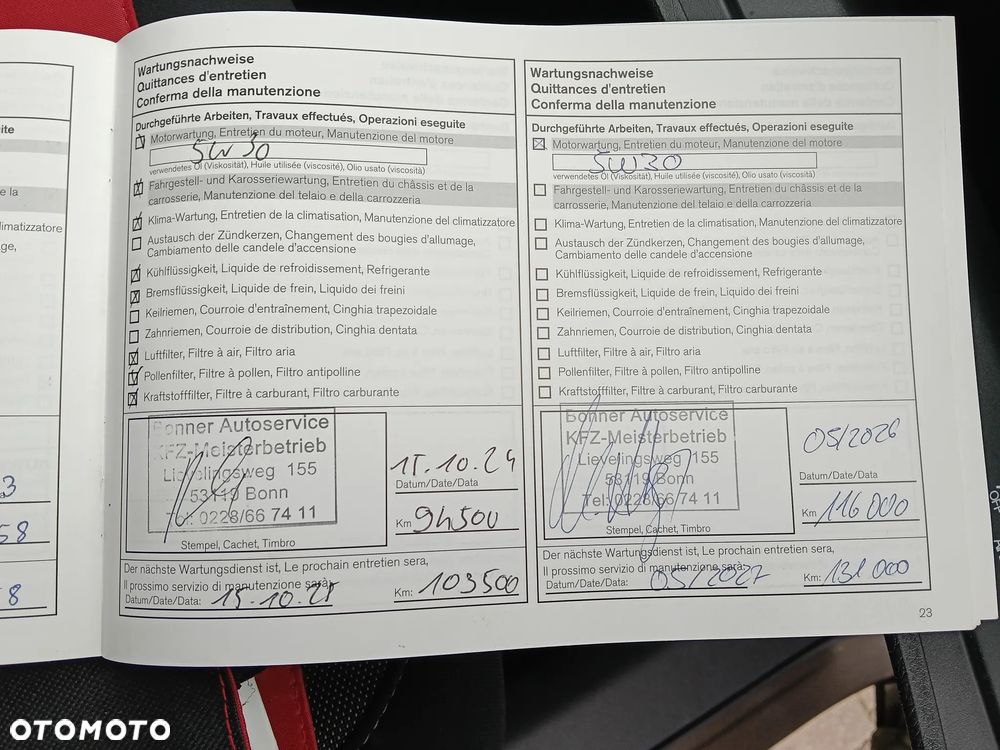 ite
e la
imatizzatore
age,
3
58
8
Wartungsnachweise
Quittances d'entretien
Conferma della manutenzione
Durchgeführte Arbeiten, Travaux effectués, Operazioni eseguite
Motorwartung, Entretien du moteur, Manutenzione del motore
5W30
verwendetes Öl (Viskosität), Huile utilisée (viscosité), Olio usato (viscosità)
Fahrgestell- und Karosseriewartung, Entretien du châssis et de la
carrosserie, Manutenzione del telaio e della carrozzeria
Klima-Wartung, Entretien de la climatisation, Manutenzione del climatizzatore
Austausch der Zündkerzen, Changement des bougies d'allumage,
Cambiamento delle candele d'accensione
Kühlflüssigkeit, Liquide de refroidissement, Refrigerante
Bremsflüssigkeit, Liquide de frein, Liquido dei freini
Keilriemen, Courroie d'entraînement, Cinghia trapezoidale
Zahnriemen, Courroie de distribution, Cinghia dentata
Luftfilter, Filtre à air, Filtro aria
Pollenfilter, Filtre à pollen, Filtro antipolline
Kraftstofffilter, Filtre à carburant, Filtro carburante
Bonner Autoservice
KFZ-Meisterbetrieb
Lievelingsweg 155
53119 Bonn
Tel: 0228/66 74 11
Stempel, Cachet, Timbro
15.10.24
Datum/Date/Data
Km 94500
Der nächste Wartungsdienst ist, Le prochain entretien sera,
Il prossimo servizio di manutenzione sarà:
Datum/Date/Data: 15.10.25
Km: 103500
Wartungsnachweise
Quittances d'entretien
Conferma della manutenzione
Durchgeführte Arbeiten, Travaux effectués, Operazioni eseguite
Motorwartung, Entretien du moteur, Manutenzione del motore
5W30
verwendetes Öl (Viskosität), Huile utilisée (viscosité), Olio usato (viscosità)
Fahrgestell- und Karosseriewartung, Entretien du châssis et de la
carrosserie, Manutenzione del telaio e della carrozzeria
Klima-Wartung, Entretien de la climatisation, Manutenzione del climatizzatore
Austausch der Zündkerzen, Changement des bougies d'allumage,
Cambiamento delle candele d'accensione
Kühlflüssigkeit, Liquide de refroidissement, Refrigerante
Bremsflüssigkeit, Liquide de frein, Liquido dei freini
Keilriemen, Courroie d'entraînement, Cinghia trapezoidale
Zahnriemen, Courroie de distribution, Cinghia dentata
Luftfilter, Filtre à air, Filtro aria
Pollenfilter, Filtre à pollen, Filtro antipolline
Kraftstofffilter, Filtre à carburant, Filtro carburante
Bonner Autoservice
KFZ-Meisterbetrieb
Lievelingsweg 155
53119 Bonn
Tel: 0228/66 74 11
Stempel, Cachet, Timbro
05/2026
Datum/Date/Data
Km 116000
Der nächste Wartungsdienst ist, Le prochain entretien sera,
Il prossimo servizio di manutenzione sarà:
Datum/Date/Data: 05/2027
Km: 131000
23
OFF
OTOMOTO